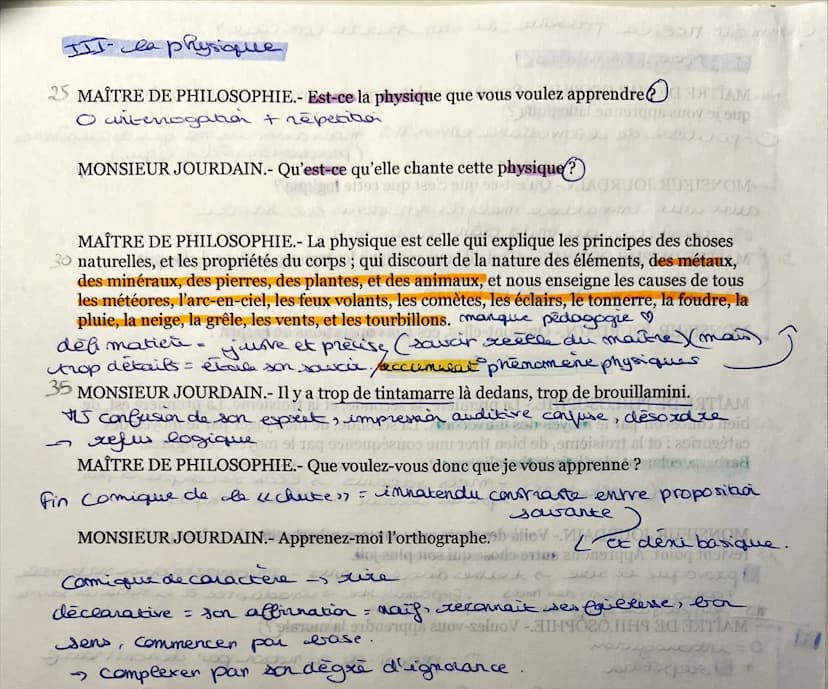 III - la physique
25 MAÎTRE DE PHILOSOPHIE.- Est-ce la physique que vous voulez apprendre ?
O interrogation + répétition
MONSIEUR JOURDAIN.- Qu'est-ce qu'elle chante cette physique ?
MAÎTRE DE PHILOSOPHIE.- La physique est celle qui explique les principes des choses
30 naturelles, et les propriétés du corps ; qui discourt de la nature des éléments, des métaux,
des minéraux, des pierres, des plantes, et des animaux, et nous enseigne les causes de tous
les météores, l'arc-en-ciel, les feux volants, les comètes, les éclairs, le tonnerre, la foudre, la
pluie, la neige, la grêle, les vents, et les tourbillons. manque pédagogie ♡
défi matière = juste et précise (savoir réelle du maître) (mais)
trop détails = étale son savoir / accumulat° phénomène physiques
35 MONSIEUR JOURDAIN.- Il y a trop de tintamarre là dedans, trop de brouillamini.
confusion de son esprit, impression auditive confuse, désordre
→ refus logique
MAÎTRE DE PHILOSOPHIE.- Que voulez-vous donc que je vous apprenne ?
Fin comique de la « chute » = innatendu contraste entre proposition
savante
MONSIEUR JOURDAIN.- Apprenez-moi l'orthographe.
et déni basique.
Comique de caractère → rire
déclarative = son affirmation = naïf, reconnait ses faiblesse, bon
sens, commencer par base.
→ complexer par son dégré d'ignorance.